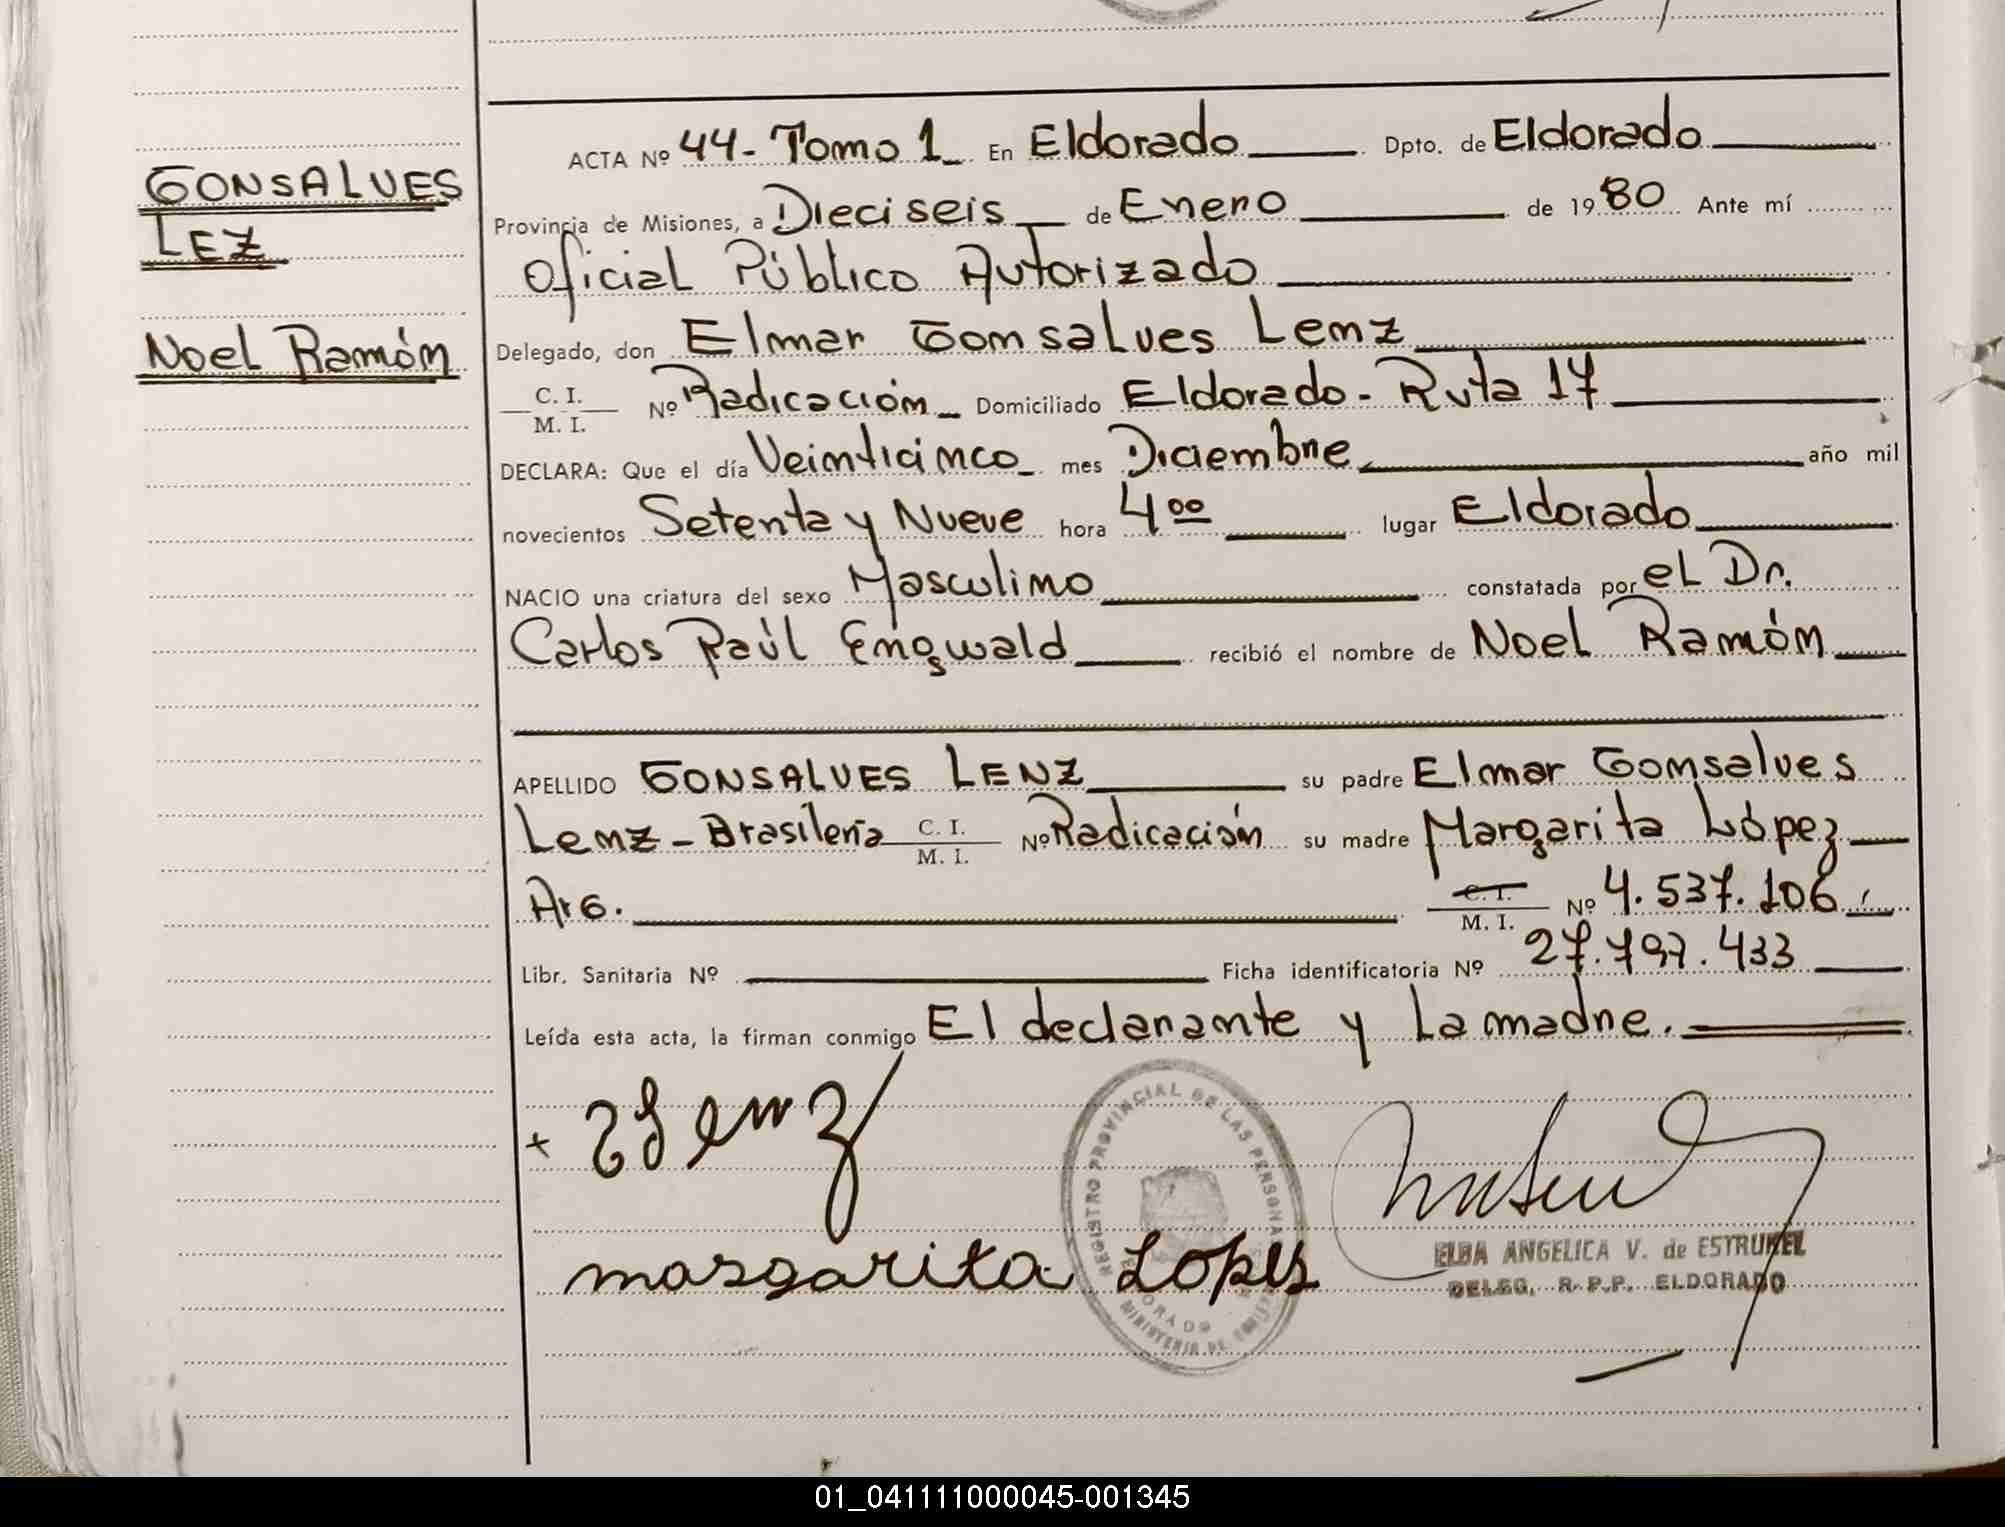 GONSALVES
LEZ
Noel Ramón
ACTA Nº 44- Tomo 1 En Eldorado Dpto. de Eldorado
Provincia de Misiones, a Dieciseis de Enero de 19 80 Ante mí
Oficial Público Autorizado
Delegado, don Elmar Gonsalves Lenz
C. I.
M. I. Nº Radicación Domiciliado Eldorado - Ruta 17
DECLARA: Que el día Veinticinco mes Diciembre año mil
novecientos Setenta y Nueve hora 4 00 lugar Eldorado
NACIO una criatura del sexo Masculino constatada por el Dr.
Carlos Raúl Engwald recibió el nombre de Noel Ramón
APELLIDO GONSALVES LENZ su padre Elmar Gonsalves
Lenz - Brasileña C. I. M. I. Nº Radicación su madre Margarita López
Arg. C. I. M. I. Nº 4.537.106
Libr. Sanitaria Nº Ficha identificatoria Nº 27.797.433
Leída esta acta, la firman conmigo El declarante y La madre.
Lenz
margarita Lopes
REGISTRO PROVINCIAL DE LAS PERSONAS
ELDORADO
MINISTERIO DE
ELBA ANGELICA V. de ESTRUKEL
DELEG. R.P.P. ELDORADO
01_041111000045-001345